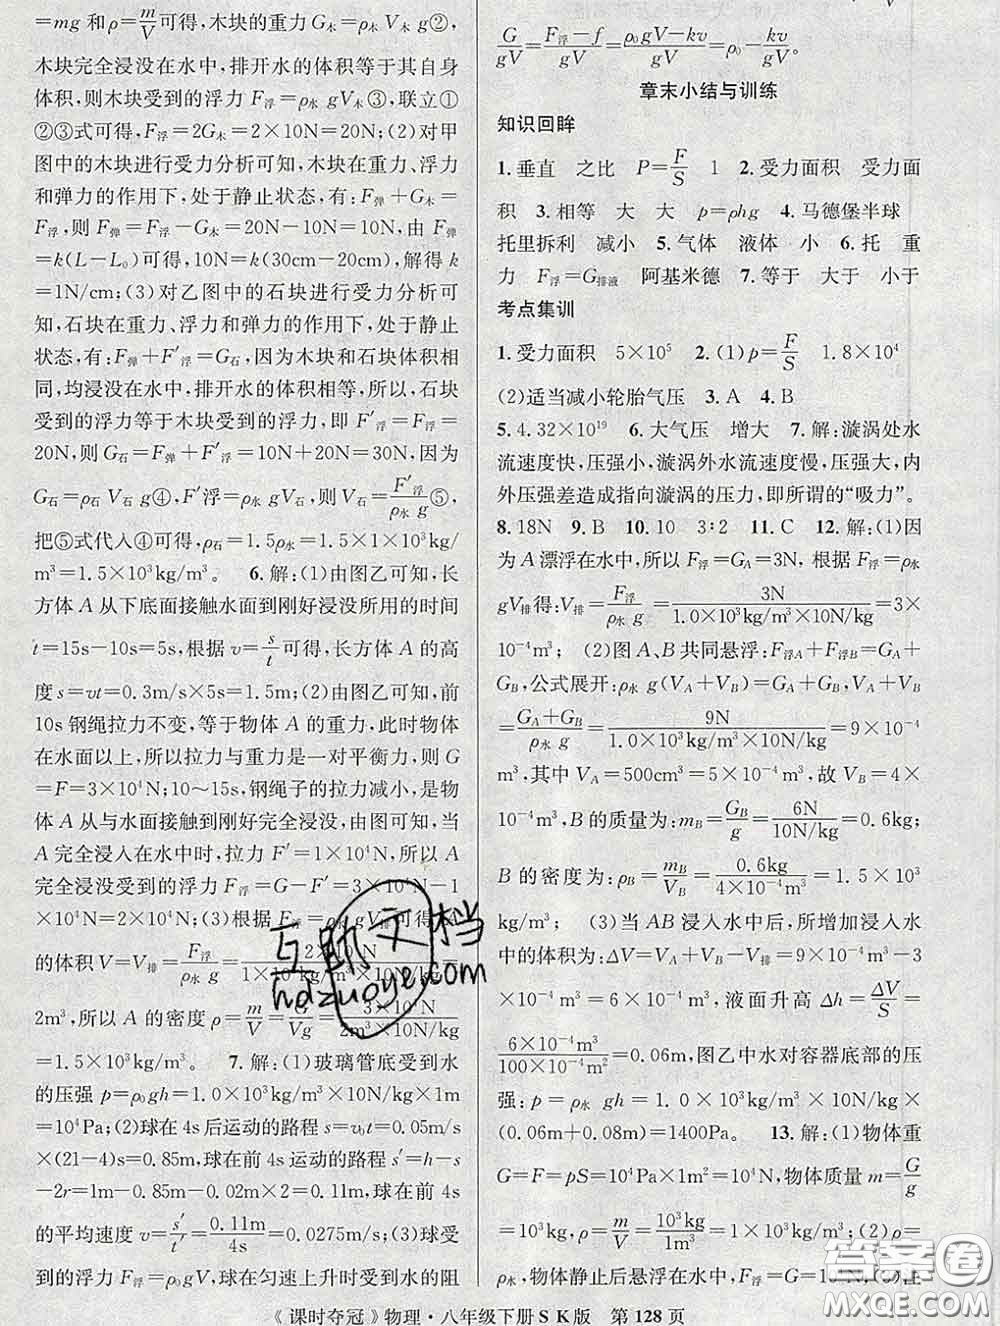 =mg和ρ=m/V可得,木块的重力G木=ρ木 V木 g②,
木块完全浸没在水中,排开水的体积等于其自身
体积,则木块受到的浮力F浮=ρ水 gV木③,联立①
②③式可得,F浮=2G木=2×10N=20N;(2)对甲
图中的木块进行受力分析可知,木块在重力、浮力
和弹力的作用下,处于静止状态,有:F弹+G木=
F浮,则F弹=F浮-G木=20N-10N=10N,由F弹
=k(L-L₀)可得,10N=k(30cm-20cm),解得k=
1N/cm;(3)对乙图中的石块进行受力分析可
知,石块在重力、浮力和弹力的作用下,处于静止
状态,有:F弹+F′浮=G石,因为木块和石块体积相
同,均浸没在水中,排开水的体积相等,所以,石块
受到的浮力等于木块受到的浮力,即F′浮=F浮=
20N,则G石=F弹+F′浮=10N+20N=30N,因为
G石=ρ石 V石 g④,F′浮=ρ水 gV石,则V石=F′浮/ρ水 g⑤,
把⑤式代入④可得,ρ石=1.5ρ水=1.5×1×10³kg/
m³=1.5×10³kg/m³。 6.解:(1)由图乙可知,长
方体A从下底面接触水面到刚好浸没所用的时间
t=15s-10s=5s,根据v=s/t可得,长方体A的高
度s=vt=0.3m/s×5s=1.5m;(2)由图乙可知,前
10s钢绳拉力不变,等于物体A的重力,此时物体
在水面以上,所以拉力与重力是一对平衡力,则G
=F=3×10⁴N;10~15s,钢绳子的拉力减小,是物
体A从与水面接触到刚好完全浸没,由图可知,当
A完全浸入在水中时,拉力F′=1×10⁴N,所以A
完全浸没受到的浮力F浮=G-F′=3×10⁴N-1
×10⁴N=2×10⁴N;(3)根据F浮=ρ水 gV排可得A
的体积V=V排=F浮/ρ水 g=2×10⁴N/1×10³kg/m³×10N/kg=
2m³,所以A的密度ρ=m/V=G/Vg=3×10⁴N/2m³×10N/kg
=1.5×10³kg/m³。 7.解:(1)玻璃管底受到水
的压强p=ρ₀gh=1.0×10³kg/m³×10N/kg×1m
=10⁴Pa;(2)球在4s后运动的路程s=v₀t=0.05m/s
×(21-4)s=0.85m,球在前4s运动的路程s′=h-s
-2r=1m-0.85m-0.02m×2=0.11m,球在前4s
的平均速度v=s′/t′=0.11m/4s=0.0275m/s;(3)球受
到的浮力F浮=ρ₀gV,球在匀速上升时受到水的阻
G/gV=F浮-f/gV=ρ₀gV-kv/gV=ρ₀-kv/gV。
章末小结与训练
知识回眸
1.垂直 之比 P=F/S 1 2.受力面积 受力面
积 3.相等 大 大 p=ρhg 4.马德堡半球
托里拆利 减小 5.气体 液体 小 6.托 重
力 F浮=G排液 阿基米德 7.等于 大于 小于
考点集训
1.受力面积 5×10⁵ 2.(1)p=F/S 1.8×10⁴
(2)适当减小轮胎气压 3.A 4.B
5.4.32×10¹⁹ 6.大气压 增大 7.解:漩涡处水
流速度快,压强小,漩涡外水流速度慢,压强大,内
外压强差造成指向漩涡的压力,即所谓的“吸力”。
8.18N 9.B 10.10 3∶2 11.C 12.解:(1)因
为A漂浮在水中,所以F浮=GA=3N,根据F浮=ρ水
gV排得:V排=F浮/ρ水 g=3N/1.0×10³kg/m³×10N/kg=3×
10⁻⁴m³; (2)图A、B共同悬浮:F浮A+F浮B=GA+
GB,公式展开:ρ水 g(VA+VB)=GA+GB,VA+VB
=GA+GB/ρ水 g=9N/1.0×10³kg/m³×10N/kg=9×10⁻⁴
m³,其中VA=500cm³=5×10⁻⁴m³,故VB=4×
10⁻⁴m³,B的质量为:mB=GB/g=6N/10N/kg=0.6kg;
B的密度为:ρB=mB/VB=0.6kg/4×10⁻⁴m³=1.5×10³
kg/m³; (3)当AB浸入水中后,所增加浸入水
中的体积为:ΔV=VA+VB-V排=9×10⁻⁴m³-3
×10⁻⁴m³=6×10⁻⁴m³,液面升高Δh=ΔV/S=
6×10⁻⁴m³/100×10⁻⁴m²=0.06m,图乙中水对容器底部的压
强:p=ρ水 gh=1.0×10³kg/m³×10N/kg×
(0.06m+0.08m)=1400Pa。 13.解:(1)物体重
G=F=pS=10⁴Pa×1m²=10⁴N,物体质量m=G/g
=10³kg,ρ=m/V=10³kg/1m³=1×10³kg/m³;(2)ρ=
ρ水,物体静止后悬浮在水中,F浮=G=10⁴N;(3)上
《课时夺冠》物理·八年级下册SK版 第128页
互助文档
hdzuoye.com
答案圈
MXQE.COM